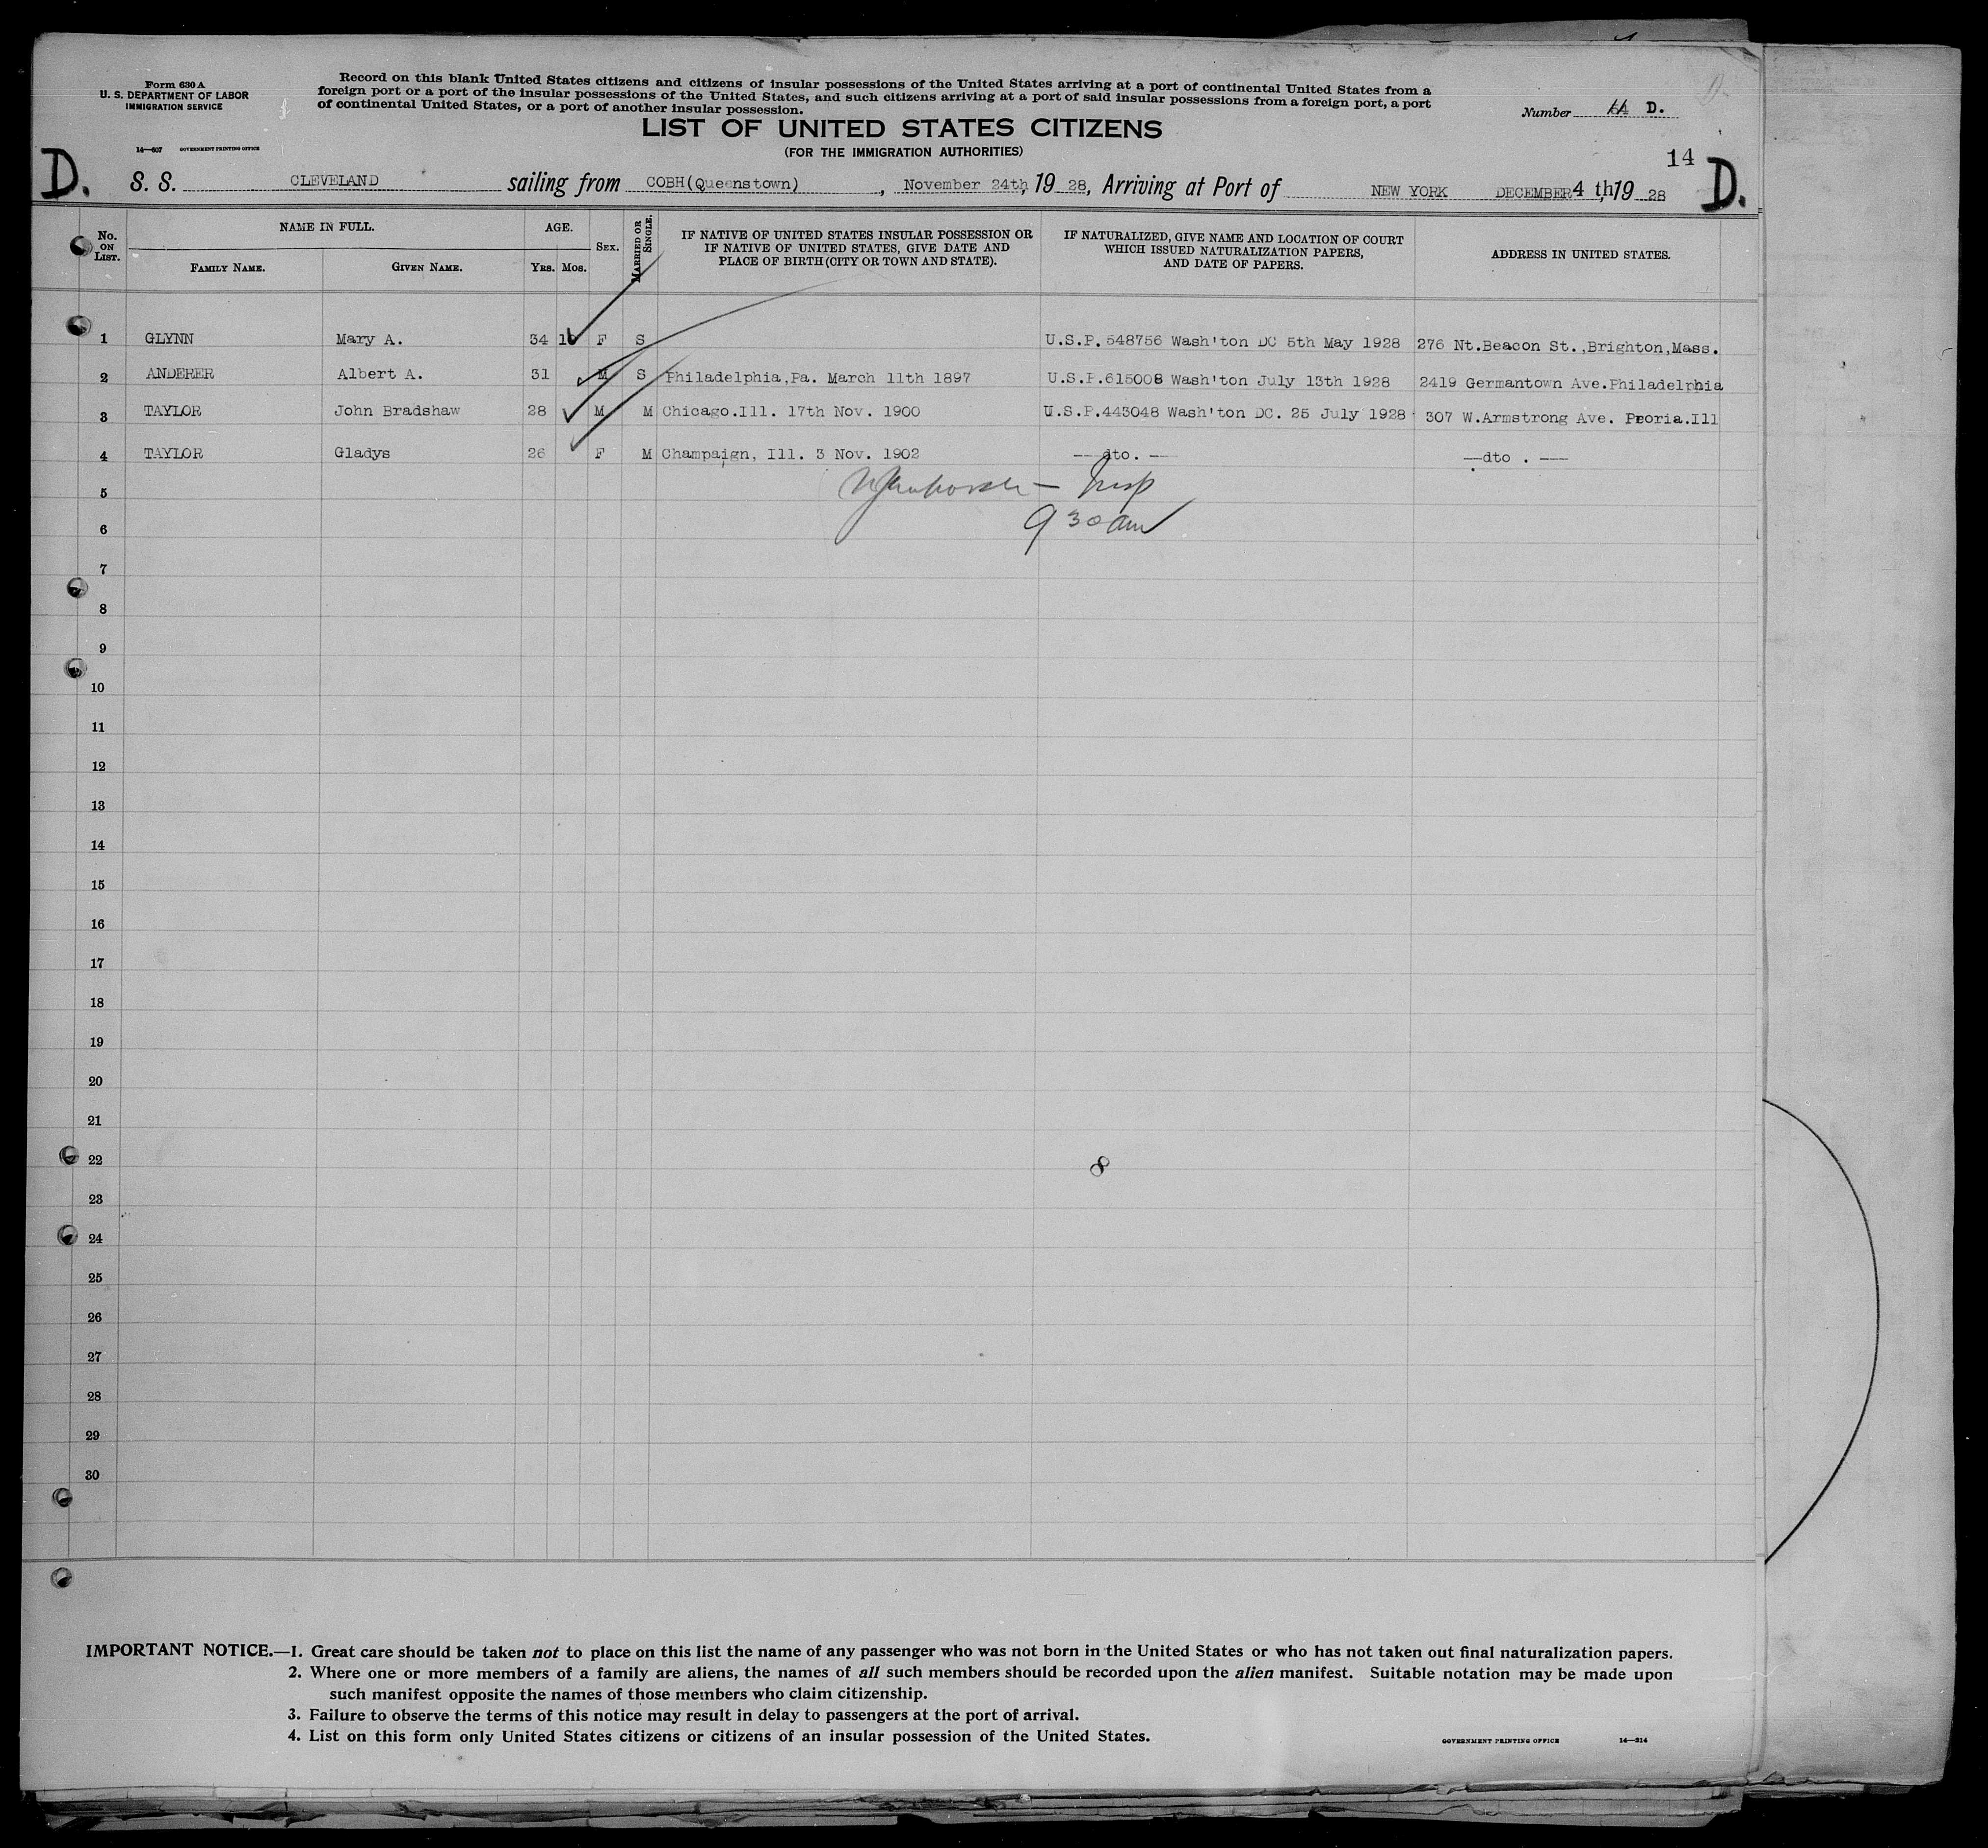 Form 630 A
U. S. DEPARTMENT OF LABOR
IMMIGRATION SERVICE
14—607 GOVERNMENT PRINTING OFFICE
Record on this blank United States citizens and citizens of insular possessions of the United States arriving at a port of continental United States from a
foreign port or a port of the insular possessions of the United States, and such citizens arriving at a port of said insular possessions from a foreign port, a port
of continental United States, or a port of another insular possession.
Number D.
LIST OF UNITED STATES CITIZENS
(FOR THE IMMIGRATION AUTHORITIES)
14
D. S. S. CLEVELAND sailing from COBH(Queenstown), November 24th, 1928, Arriving at Port of NEW YORK DECEMBER 4 th, 1928 D.
No. ON LIST. NAME IN FULL. FAMILY NAME. GIVEN NAME. AGE. YRS. MOS. SEX. MARRIED OR SINGLE. IF NATIVE OF UNITED STATES INSULAR POSSESSION OR IF NATIVE OF UNITED STATES, GIVE DATE AND PLACE OF BIRTH (CITY OR TOWN AND STATE). IF NATURALIZED, GIVE NAME AND LOCATION OF COURT WHICH ISSUED NATURALIZATION PAPERS, AND DATE OF PAPERS. ADDRESS IN UNITED STATES.
1 GLYNN Mary A. 34 F S U.S.P. 548756 Wash'ton DC 5th May 1928 276 Nt.Beacon St.,Brighton,Mass.
2 ANDERER Albert A. 31 M S Philadelphia,Pa. March 11th 1897 U.S.P.615008 Wash'ton July 13th 1928 2419 Germantown Ave.Philadelphia
3 TAYLOR John Bradshaw 28 M M Chicago.Ill. 17th Nov. 1900 U.S.P.443048 Wash'ton DC. 25 July 1928 307 W.Armstrong Ave. Peoria.Ill
4 TAYLOR Gladys 26 F M Champaign, Ill. 3 Nov. 1902 —dto. — —dto . —
5 Insp
6 9 30 am
7
8
9
10
11
12
13
14
15
16
17
18
19
20
21
22 8
23
24
25
26
27
28
29
30
IMPORTANT NOTICE.—1. Great care should be taken not to place on this list the name of any passenger who was not born in the United States or who has not taken out final naturalization papers.
2. Where one or more members of a family are aliens, the names of all such members should be recorded upon the alien manifest. Suitable notation may be made upon
such manifest opposite the names of those members who claim citizenship.
3. Failure to observe the terms of this notice may result in delay to passengers at the port of arrival.
4. List on this form only United States citizens or citizens of an insular possession of the United States.
GOVERNMENT PRINTING OFFICE 14—214